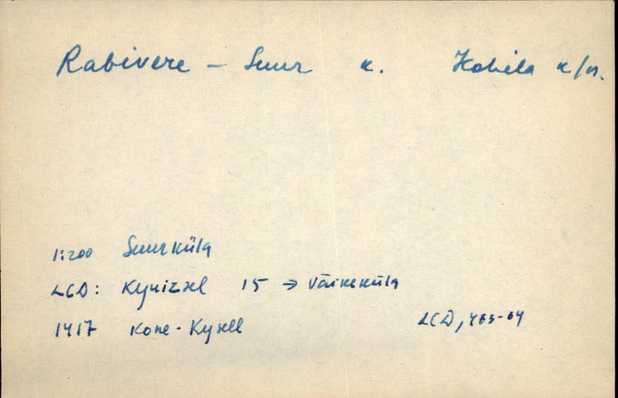 Rabivere - Suur k. Kohila k/n.
1:200 Suurküla
LCD: Kyrizel 15 → Väikeküla
1417 Kone-Kysell
LCD, 463-64